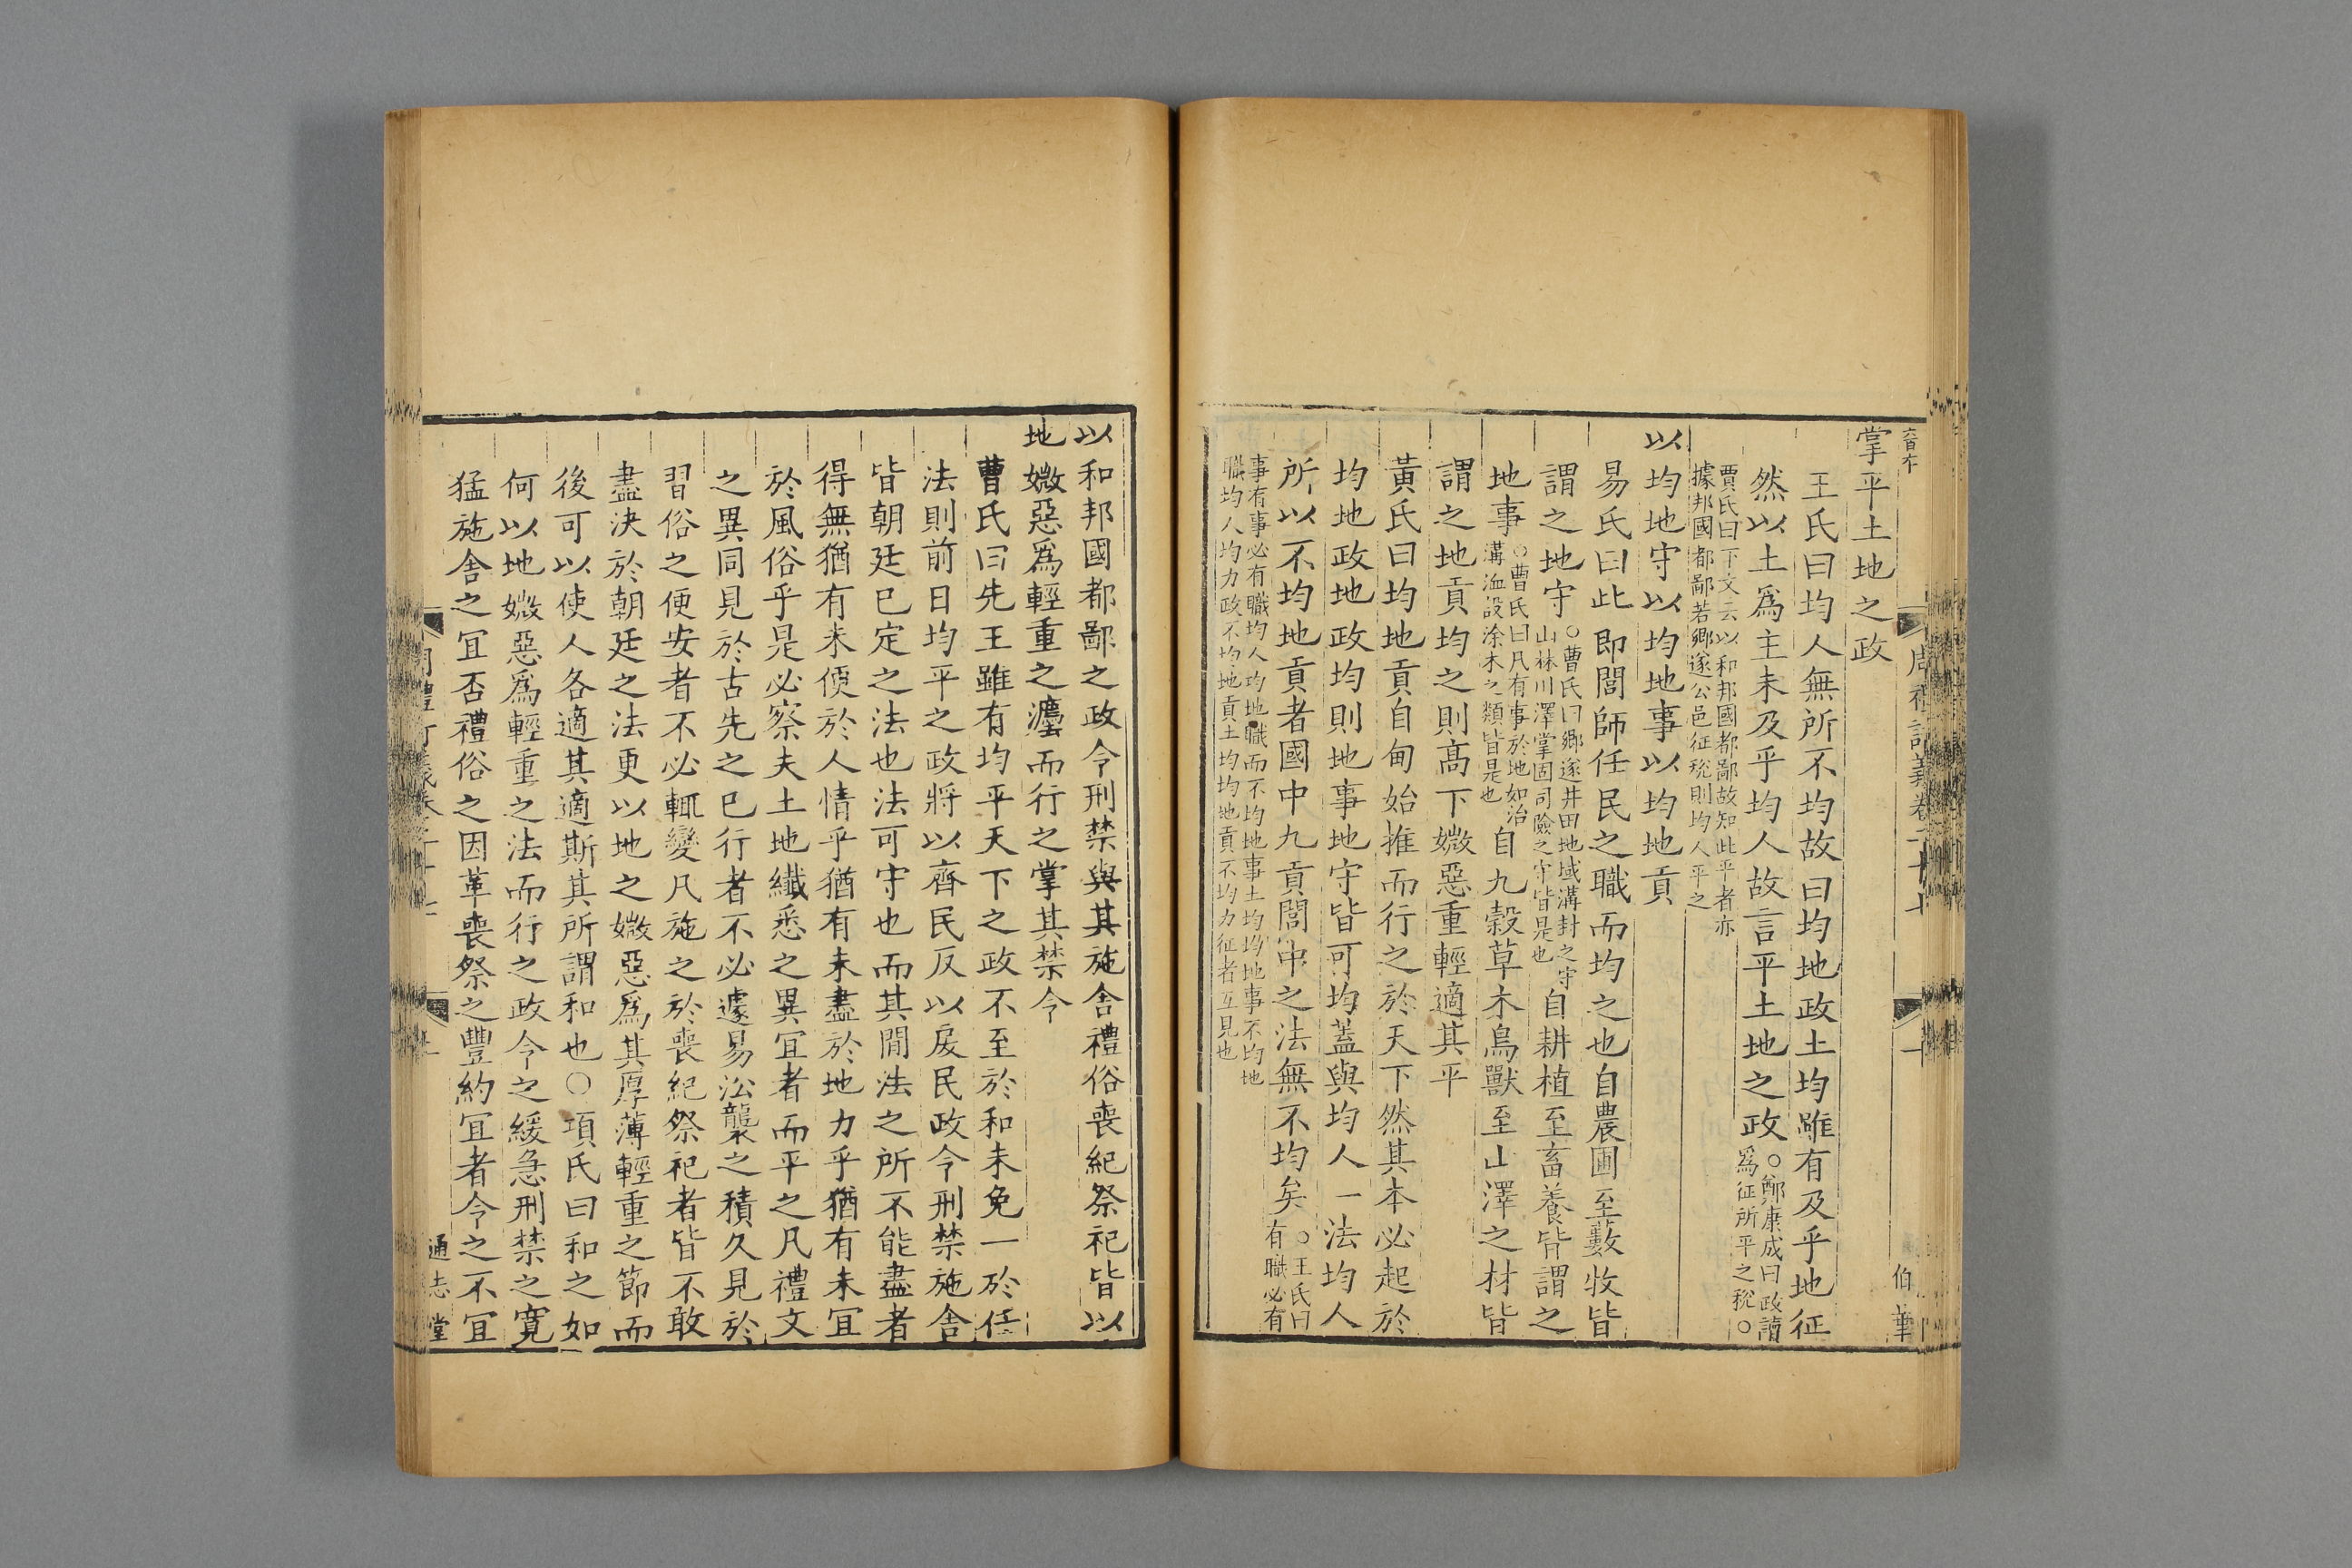 掌平土地之政
王氏曰均人無所不均故曰均地政土均雖有及乎地征
然以土為主未及乎均人故言平土地之政○鄭康成曰政讀
為征所平之稅○
賈氏曰下文云以和邦國都鄙故知此平者亦
據邦國都鄙若鄉遂公邑征稅則均人平之
以均地守以均地事以均地貢
易氏曰此即閭師任民之職而均之也自農圃至藪牧皆
謂之地守○曹氏曰鄉遂井田地域溝封之守
山林川澤掌固司險之守皆是也自耕植至畜養皆謂之
地事○曹氏曰凡有事於地如治
溝洫設涂木之類皆是也自九穀草木鳥獸至山澤之材皆
謂之地貢均之則高下媺惡重輕適其平
黃氏曰均地貢自甸始推而行之於天下然其本必起於
均地政地政均則地事地守皆可均蓋與均人一法均人
所以不均地貢者國中九貢閭中之法無不均矣○王氏曰
有職必有
事有事必有職均人均地職而不均地事土均均地事不均地
職均人均力政不均地貢土均均地貢不均力征者互見也
周禮訂義卷二十七
伯華
以和邦國都鄙之政令刑禁與其施舍禮俗喪紀祭祀皆以
地媺惡為輕重之灋而行之掌其禁令
曹氏曰先王雖有均平天下之政不至於和未免一於任
法則前日均平之政將以齊民反以戾民政令刑禁施舍
皆朝廷已定之法也法可守也而其閒法之所不能盡者
得無猶有未便於人情乎猶有未盡於地力乎猶有未宜
於風俗乎是必察夫土地纖悉之異宜者而平之凡禮文
之異同見於古先之已行者不必遽易沿襲之積久見於
習俗之便安者不必輒變凡施之於喪紀祭祀者皆不敢
盡決於朝廷之法更以地之媺惡為其厚薄輕重之節而
後可以使人各適其適斯其所謂和也○項氏曰和之如
何以地媺惡為輕重之法而行之政令之緩急刑禁之寬
猛施舍之宜否禮俗之因革喪祭之豐約宜者令之不宜
通志堂